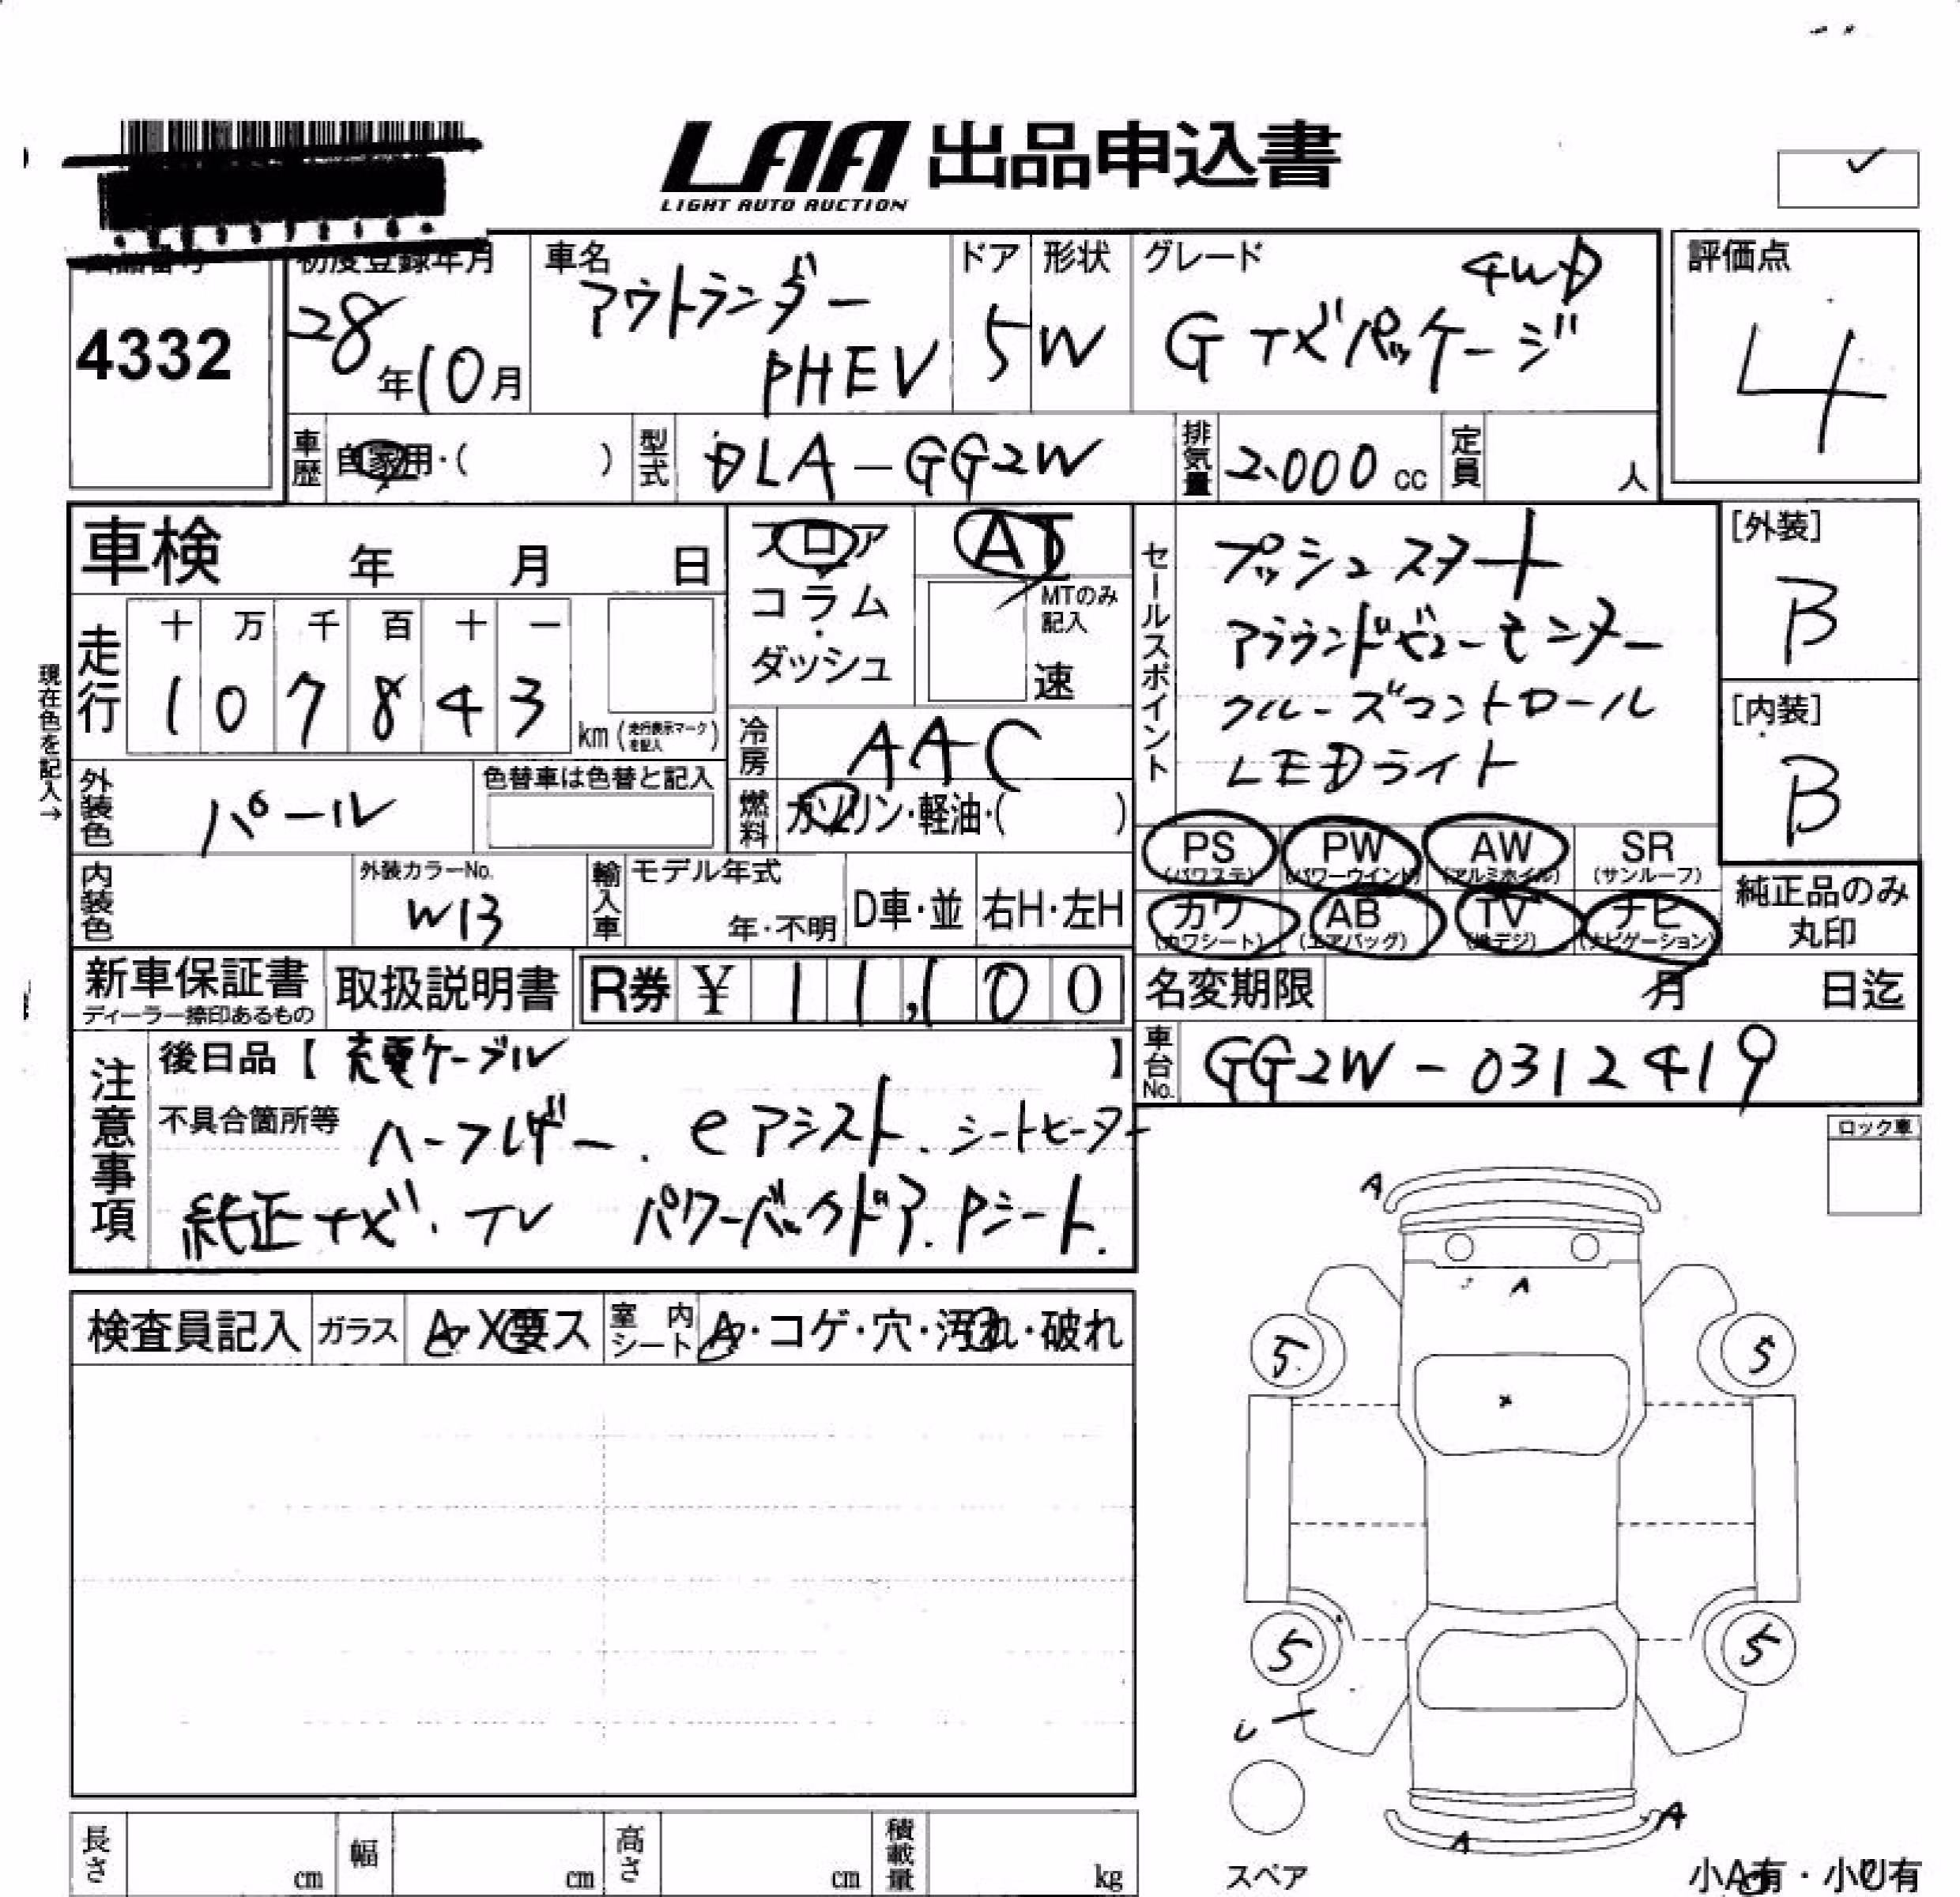 LAA 出品申込書
LIGHT AUTO AUCTION
4332
初度登録年月
28年10月
車名
アウトランダー
PHEV
ドア
5
形状
W
グレード
4WD
G ナビパッケージ
評価点
4
車歴
自家用・( )
型式
DLA-GG2W
排気量
2.000 cc
定員
人
車検 年 月 日
フロア
コラム
・
ダッシュ
AT
MTのみ
記入
速
現在色を記入→
走行
十 万 千 百 十 一
1 0 7 8 4 3
km (走行表示マークを記入)
冷房
AAC
燃料
ガソリン・軽油・( )
外装色
パール
色替車は色替と記入
内装色
外装カラーNo.
W13
輸入車
モデル年式
年・不明
D車・並
右H・左H
セールスポイント
プッシュスタート
アラウンドビューモニター
クルーズコントロール
LEDライト
[外装]
B
[内装]
B
PS (パワステ)
PW (パワーウインド)
AW (アルミホイル)
SR (サンルーフ)
カワ (カワシート)
AB (エアバッグ)
TV (地デジ)
ナビ (ナビゲーション)
純正品のみ
丸印
新車保証書
ディーラー捺印あるもの
取扱説明書
R券 ¥ 11,100
名変期限 月 日迄
車台No.
GG2W-0312419
注意事項
後日品【 充電ケーブル 】
不具合箇所等
ハーフレザー. eアシスト. シートヒーター
純正ナビ・TV パワーバックドア. Pシート.
ロック車
検査員記入
ガラス
A・X要ス
室内
シート
A・コゲ・穴・汚れ・破れ
A
A
5
5
x
5
5
A
A
スペア
小A有・小U有
長さ cm
幅 cm
高さ cm
積載量 kg